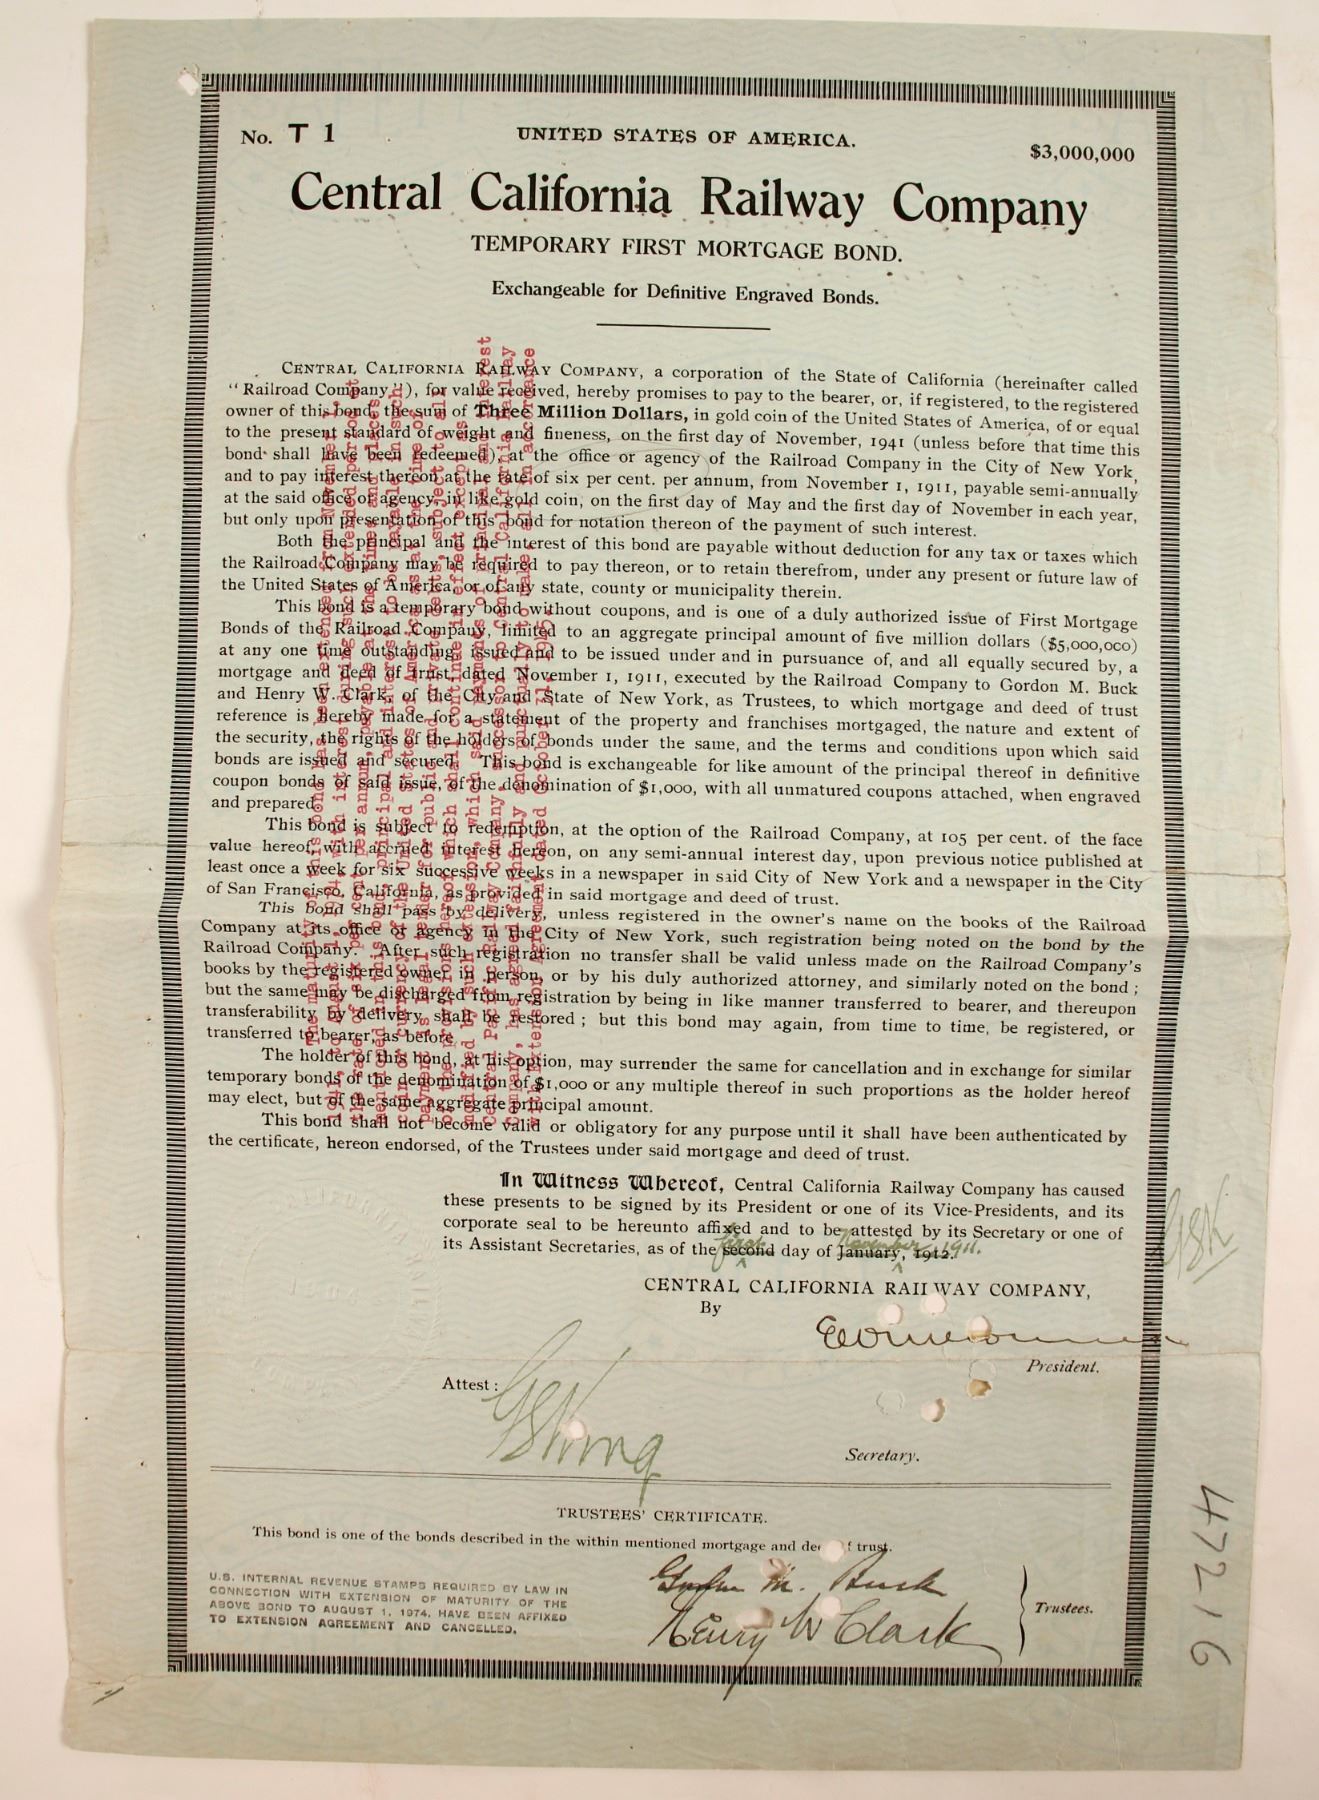 No. T 1
UNITED STATES OF AMERICA.
$3,000,000
Central California Railway Company
TEMPORARY FIRST MORTGAGE BOND.
Exchangeable for Definitive Engraved Bonds.
CENTRAL CALIFORNIA RAILWAY COMPANY, a corporation of the State of California (hereinafter called
"Railroad Company"), for value received, hereby promises to pay to the bearer, or, if registered, to the registered
owner of this bond, the sum of Three Million Dollars, in gold coin of the United States of America, of or equal
to the present standard of weight and fineness, on the first day of November, 1941 (unless before that time this
bond shall have been redeemed), at the office or agency of the Railroad Company in the City of New York,
and to pay interest thereon at the rate of six per cent. per annum, from November 1, 1911, payable semi-annually
at the said office or agency, in like gold coin, on the first day of May and the first day of November in each year,
but only upon presentation of this bond for notation thereon of the payment of such interest.
Both the principal and the interest of this bond are payable without deduction for any tax or taxes which
the Railroad Company may be required to pay thereon, or to retain therefrom, under any present or future law of
the United States of America, or of any state, county or municipality therein.
This bond is a temporary bond without coupons, and is one of a duly authorized issue of First Mortgage
Bonds of the Railroad Company, limited to an aggregate principal amount of five million dollars ($5,000,000)
at any one time outstanding, issued and to be issued under and in pursuance of, and all equally secured by, a
mortgage and deed of trust, dated November 1, 1911, executed by the Railroad Company to Gordon M. Buck
and Henry W. Clark, of the City and State of New York, as Trustees, to which mortgage and deed of trust
reference is hereby made for a statement of the property and franchises mortgaged, the nature and extent of
the security, the rights of the holders of bonds under the same, and the terms and conditions upon which said
bonds are issued and secured. This bond is exchangeable for like amount of the principal thereof in definitive
coupon bonds of said issue, of the denomination of $1,000, with all unmatured coupons attached, when engraved
and prepared.
This bond is subject to redemption, at the option of the Railroad Company, at 105 per cent. of the face
value hereof, with accrued interest hereon, on any semi-annual interest day, upon previous notice published at
least once a week for six successive weeks in a newspaper in said City of New York and a newspaper in the City
of San Francisco, California, as provided in said mortgage and deed of trust.
This bond shall pass by delivery, unless registered in the owner's name on the books of the Railroad
Company at its office or agency in the City of New York, such registration being noted on the bond by the
Railroad Company. After such registration no transfer shall be valid unless made on the Railroad Company's
books by the registered owner in person, or by his duly authorized attorney, and similarly noted on the bond;
but the same may be discharged from registration by being in like manner transferred to bearer, and thereupon
transferability by delivery shall be restored; but this bond may again, from time to time, be registered, or
transferred to bearer, as before.
The holder of this bond, at his option, may surrender the same for cancellation and in exchange for similar
temporary bonds of the denomination of $1,000 or any multiple thereof in such proportions as the holder hereof
may elect, but of the same aggregate principal amount.
This bond shall not become valid or obligatory for any purpose until it shall have been authenticated by
the certificate, hereon endorsed, of the Trustees under said mortgage and deed of trust.
In Witness Whereof, Central California Railway Company has caused
these presents to be signed by its President or one of its Vice-Presidents, and its
corporate seal to be hereunto affixed and to be attested by its Secretary or one of
first November 1911.
its Assistant Secretaries, as of the second day of January, 1912.
GSK
CENTRAL CALIFORNIA RAILWAY COMPANY,
By
President.
Attest:
GSKing
Secretary.
TRUSTEES' CERTIFICATE.
This bond is one of the bonds described in the within mentioned mortgage and dee f trust.
Gordon M. Buck
Henry W Clark
Trustees.
U.S. INTERNAL REVENUE STAMPS REQUIRED BY LAW IN
CONNECTION WITH EXTENSION OF MATURITY OF THE
ABOVE BOND TO AUGUST 1, 1974, HAVE BEEN AFFIXED
TO EXTENSION AGREEMENT AND CANCELLED.
47216